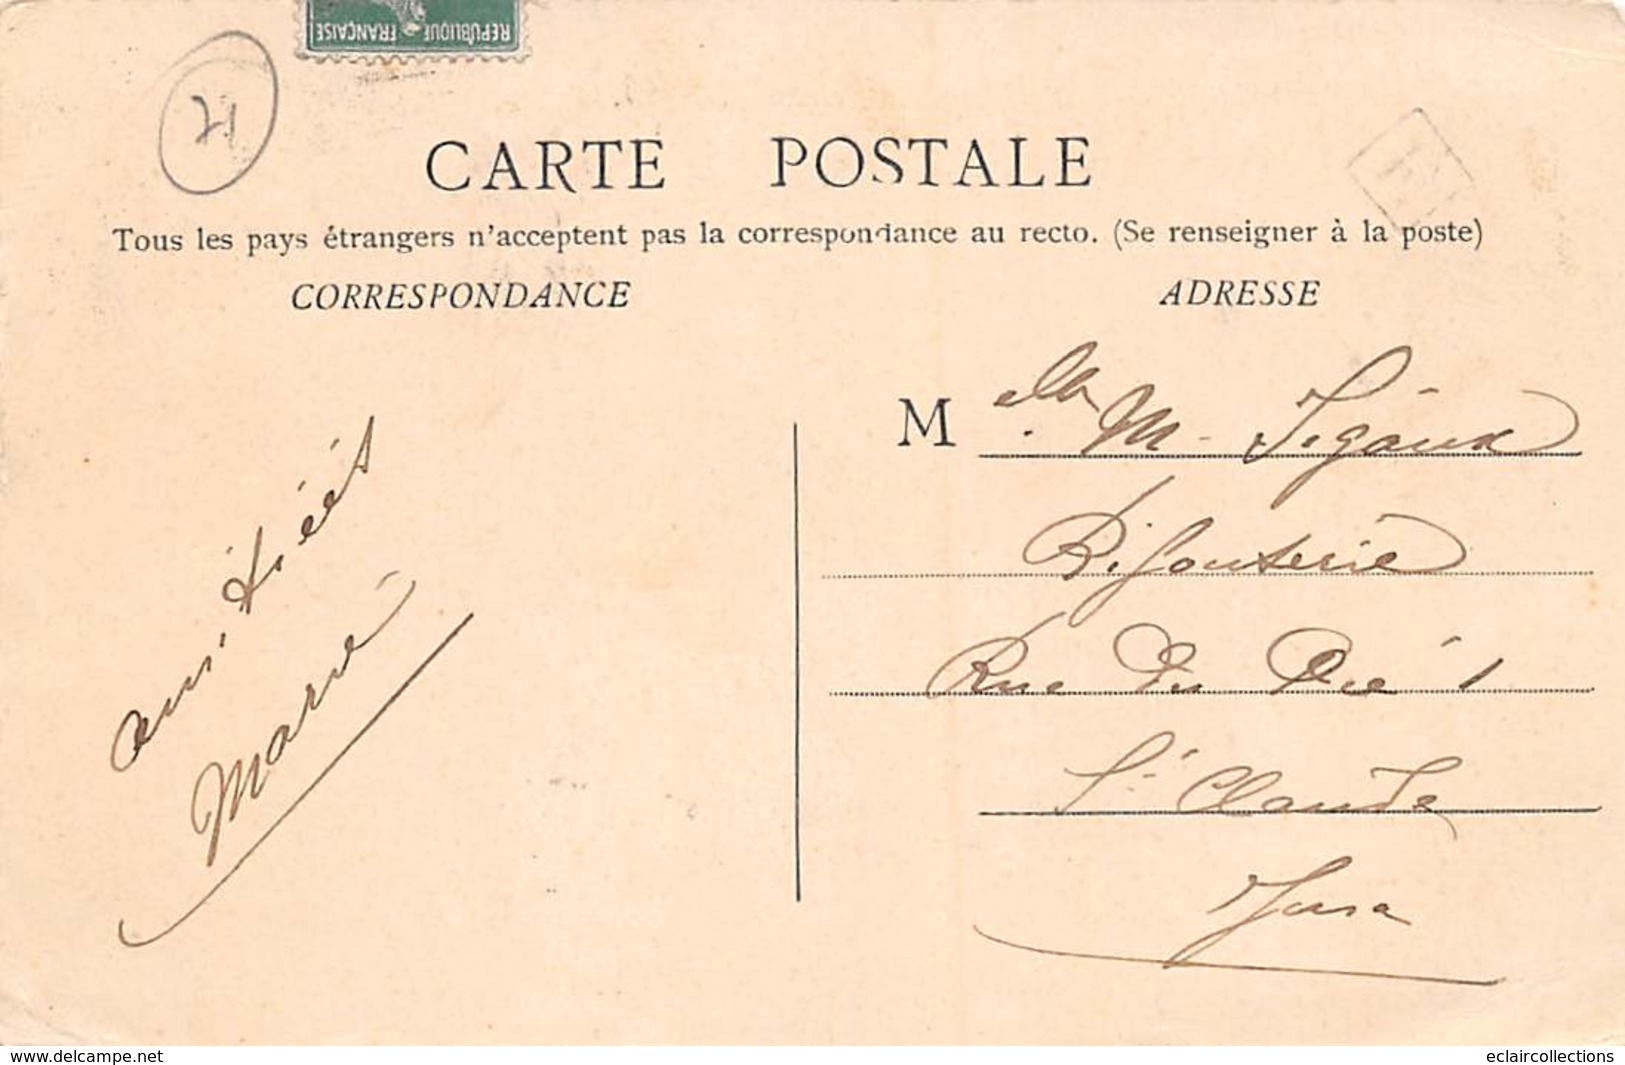 REPUBLIQUE FRANÇAISE
71
CARTE POSTALE
Tous les pays étrangers n'acceptent pas la correspondance au recto. (Se renseigner à la poste)
CORRESPONDANCE
ADRESSE
amitiéés
Marie
Melle M. Sigaux
Bijouterie
Rue du Pré 1
St Claude
Jura
www.delcampe.net
eclaircollections